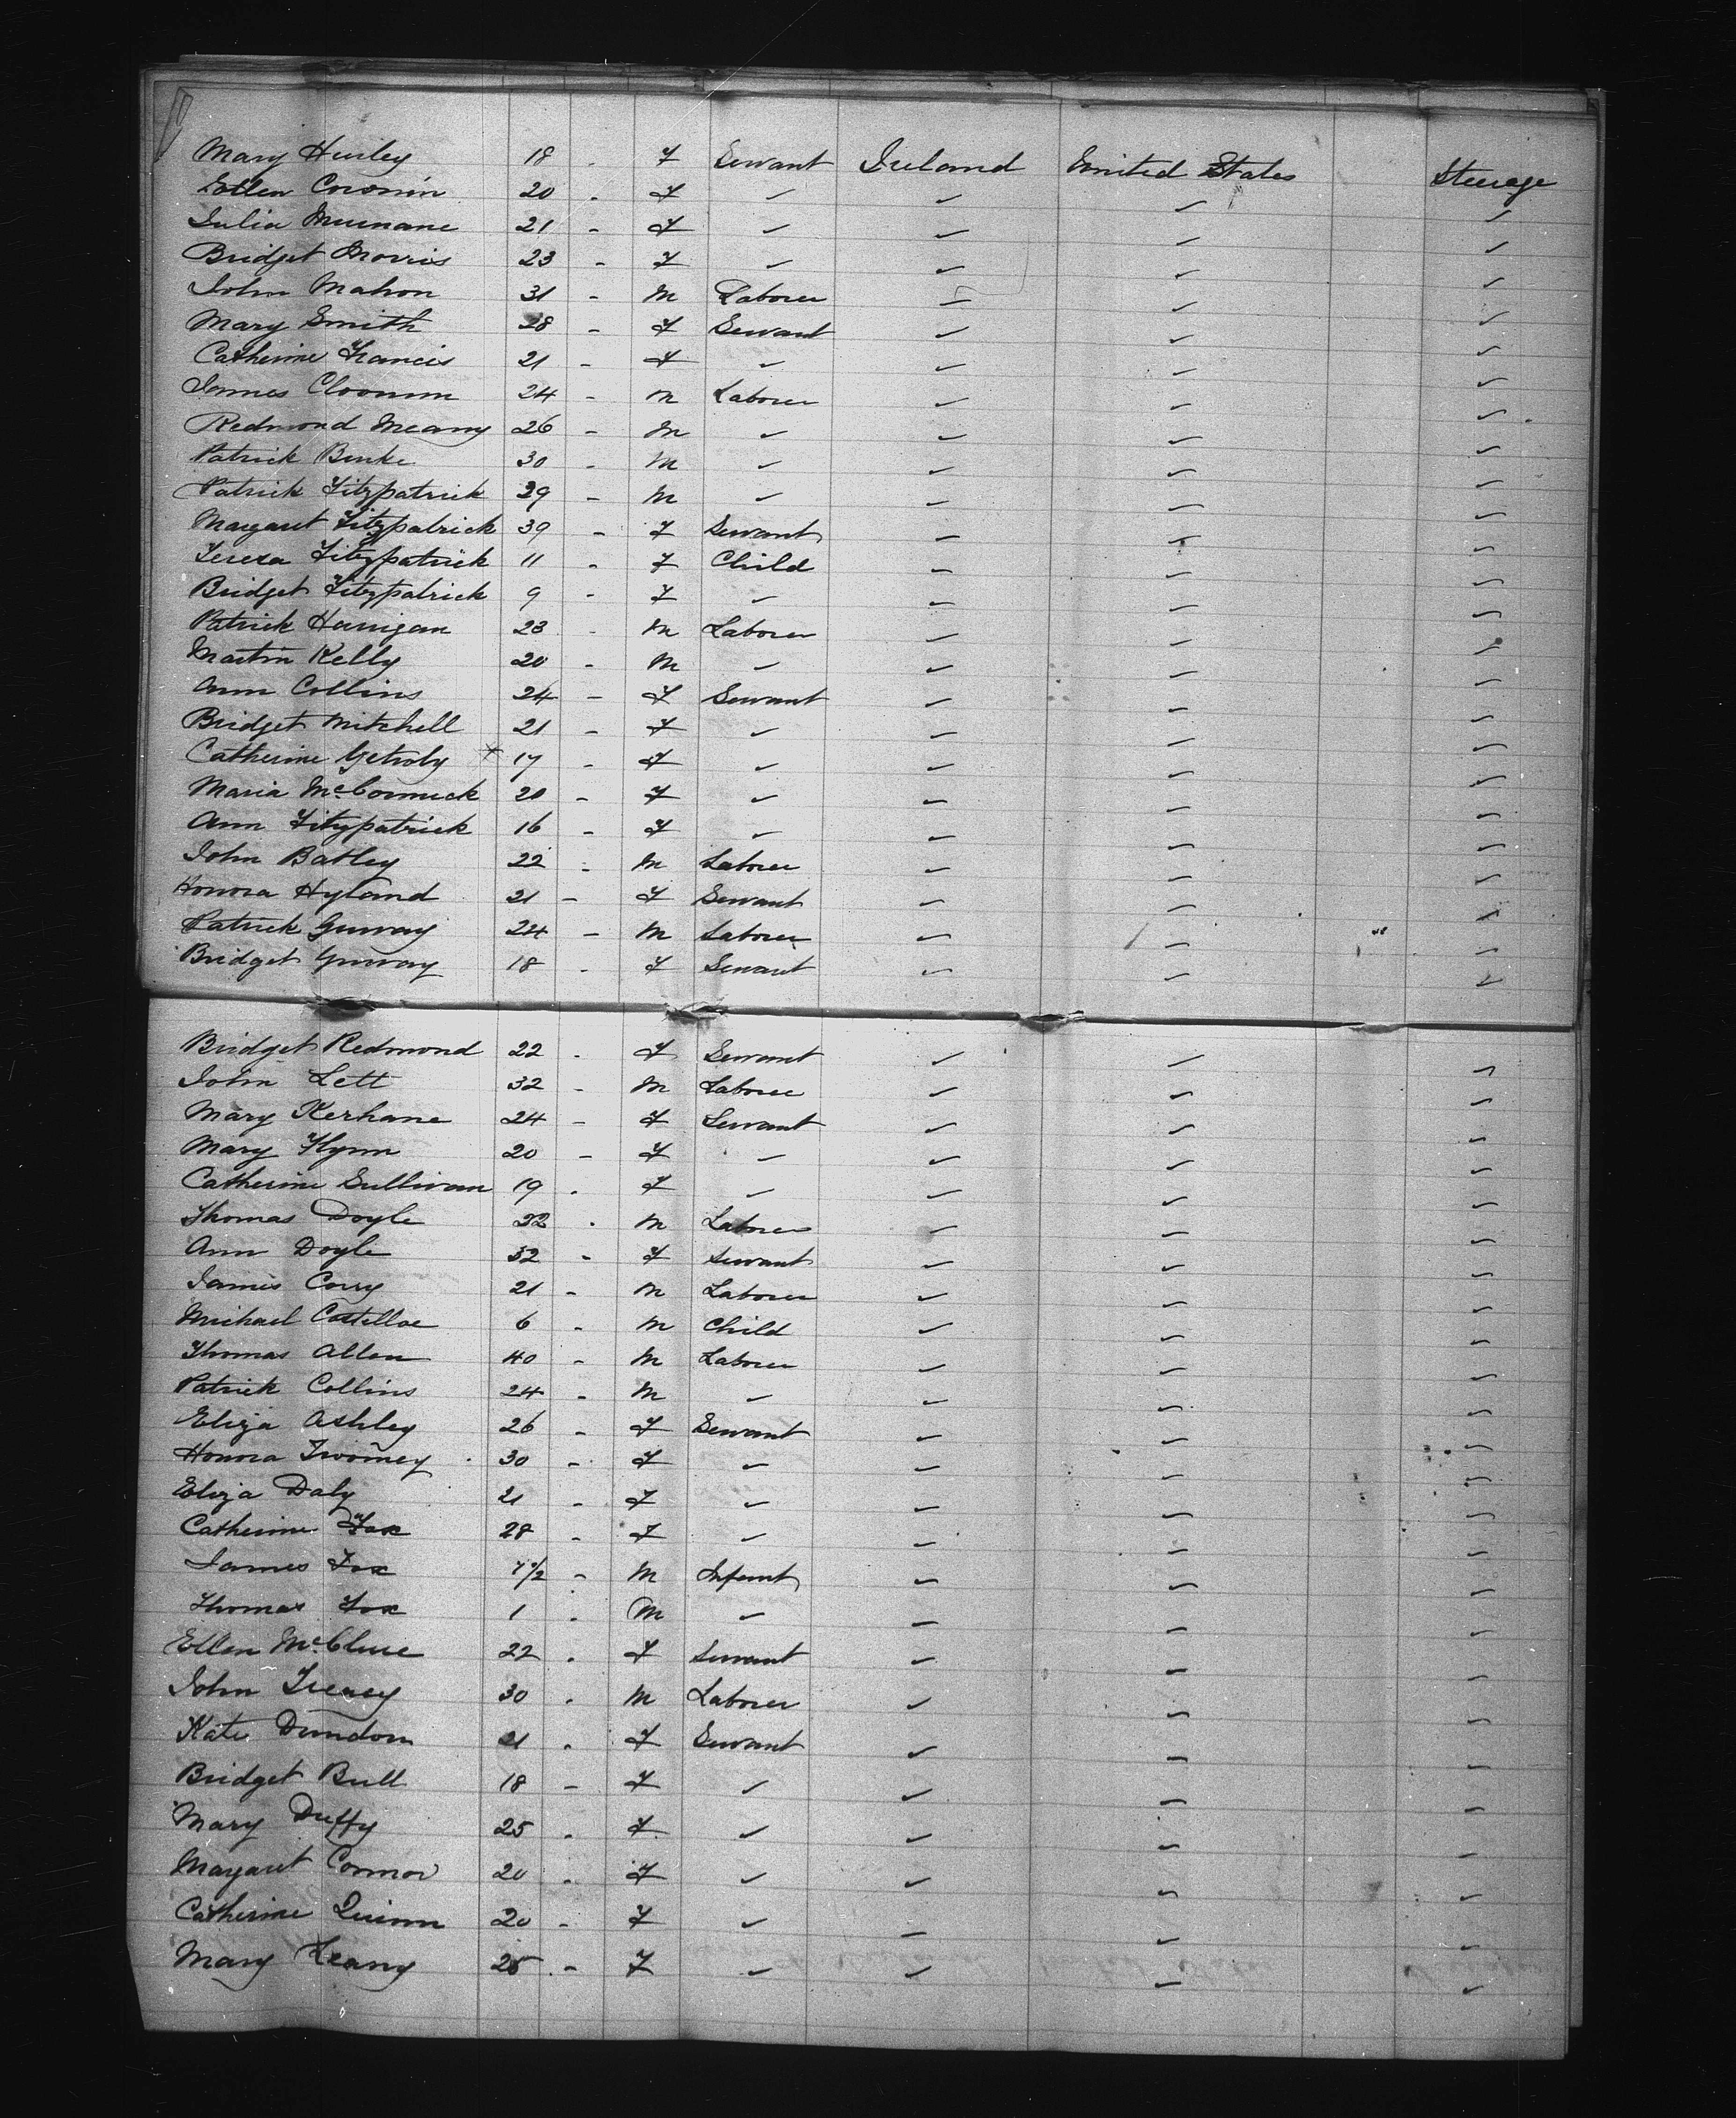 Mary Hurley 18 - F Servant Ireland United States Steerage
Ellen Cronin 20 - F ✓ ✓ ✓ ✓
Julia Murnane 21 - F ✓ ✓ ✓ ✓
Bridget Morris 23 - F ✓ ✓ ✓ ✓
John Mahon 31 - M Laborer ✓ ✓ ✓
Mary Smith 28 - F Servant ✓ ✓ ✓
Catherine Francis 21 - F ✓ ✓ ✓ ✓
James Cloonan 24 - M Laborer ✓ ✓ ✓
Redmond Meany 26 - M ✓ ✓ ✓ ✓
Patrick Burke 30 - M ✓ ✓ ✓ ✓
Patrick Fitzpatrick 39 - M ✓ ✓ ✓ ✓
Margaret Fitzpatrick 39 - F Servant ✓ ✓ ✓
Tereza Fitzpatrick 11 - F Child ✓ ✓ ✓
Bridget Fitzpatrick 9 - F ✓ ✓ ✓ ✓
Patrick Harrigan 23 - M Laborer ✓ ✓ ✓
Martin Kelly 20 - M ✓ ✓ ✓ ✓
Ann Collins 24 - F Servant ✓ ✓ ✓
Bridget Mitchell 21 - F ✓ ✓ ✓ ✓
Catherine x 17 - F ✓ ✓ ✓ ✓
Maria McCormick 20 - F ✓ ✓ ✓ ✓
Ann Fitzpatrick 16 - F ✓ ✓ ✓ ✓
John Batley 22 - M Laborer ✓ ✓ ✓
Honora Hyland 21 - F Servant ✓ ✓ ✓
Patrick 24 - M Laborer ✓ ✓ ✓
Bridget 18 - F Servant ✓ ✓ ✓
Bridget Redmond 22 - F Servant ✓ ✓ ✓
John Lett 32 - M Laborer ✓ ✓ ✓
Mary Kerhane 24 - F Servant ✓ ✓ ✓
Mary Flynn 20 - F ✓ ✓ ✓ ✓
Catherine Sullivan 19 - F ✓ ✓ ✓ ✓
Thomas Doyle 32 - M Laborer ✓ ✓ ✓
Ann Doyle 32 - F Servant ✓ ✓ ✓
James Corry 21 - M Laborer ✓ ✓ ✓
Michael Costelloe 6 - M Child ✓ ✓ ✓
Thomas Allen 40 - M Laborer ✓ ✓ ✓
Patrick Collins 24 - M ✓ ✓ ✓ ✓
Eliza Ashley 26 - F Servant ✓ ✓ ✓
Honora Twomey 30 - F ✓ ✓ ✓ ✓
Eliza Daly 21 - F ✓ ✓ ✓ ✓
Catherine Fox 28 - F ✓ ✓ ✓ ✓
James Fox - M Infant ✓ ✓ ✓
Thomas Fox 1 - M ✓ ✓ ✓ ✓
Ellen McClure 22 - F Servant ✓ ✓ ✓
John Treacy 30 - M Laborer ✓ ✓ ✓
Kate Dundon 21 - F Servant ✓ ✓ ✓
Bridget Bull 18 - F ✓ ✓ ✓ ✓
Mary Duffy 25 - F ✓ ✓ ✓ ✓
Margaret Connor 20 - F ✓ ✓ ✓ ✓
Catherine Quinn 20 - F ✓ ✓ ✓ ✓
Mary Leany 25 - F ✓ ✓ ✓ ✓